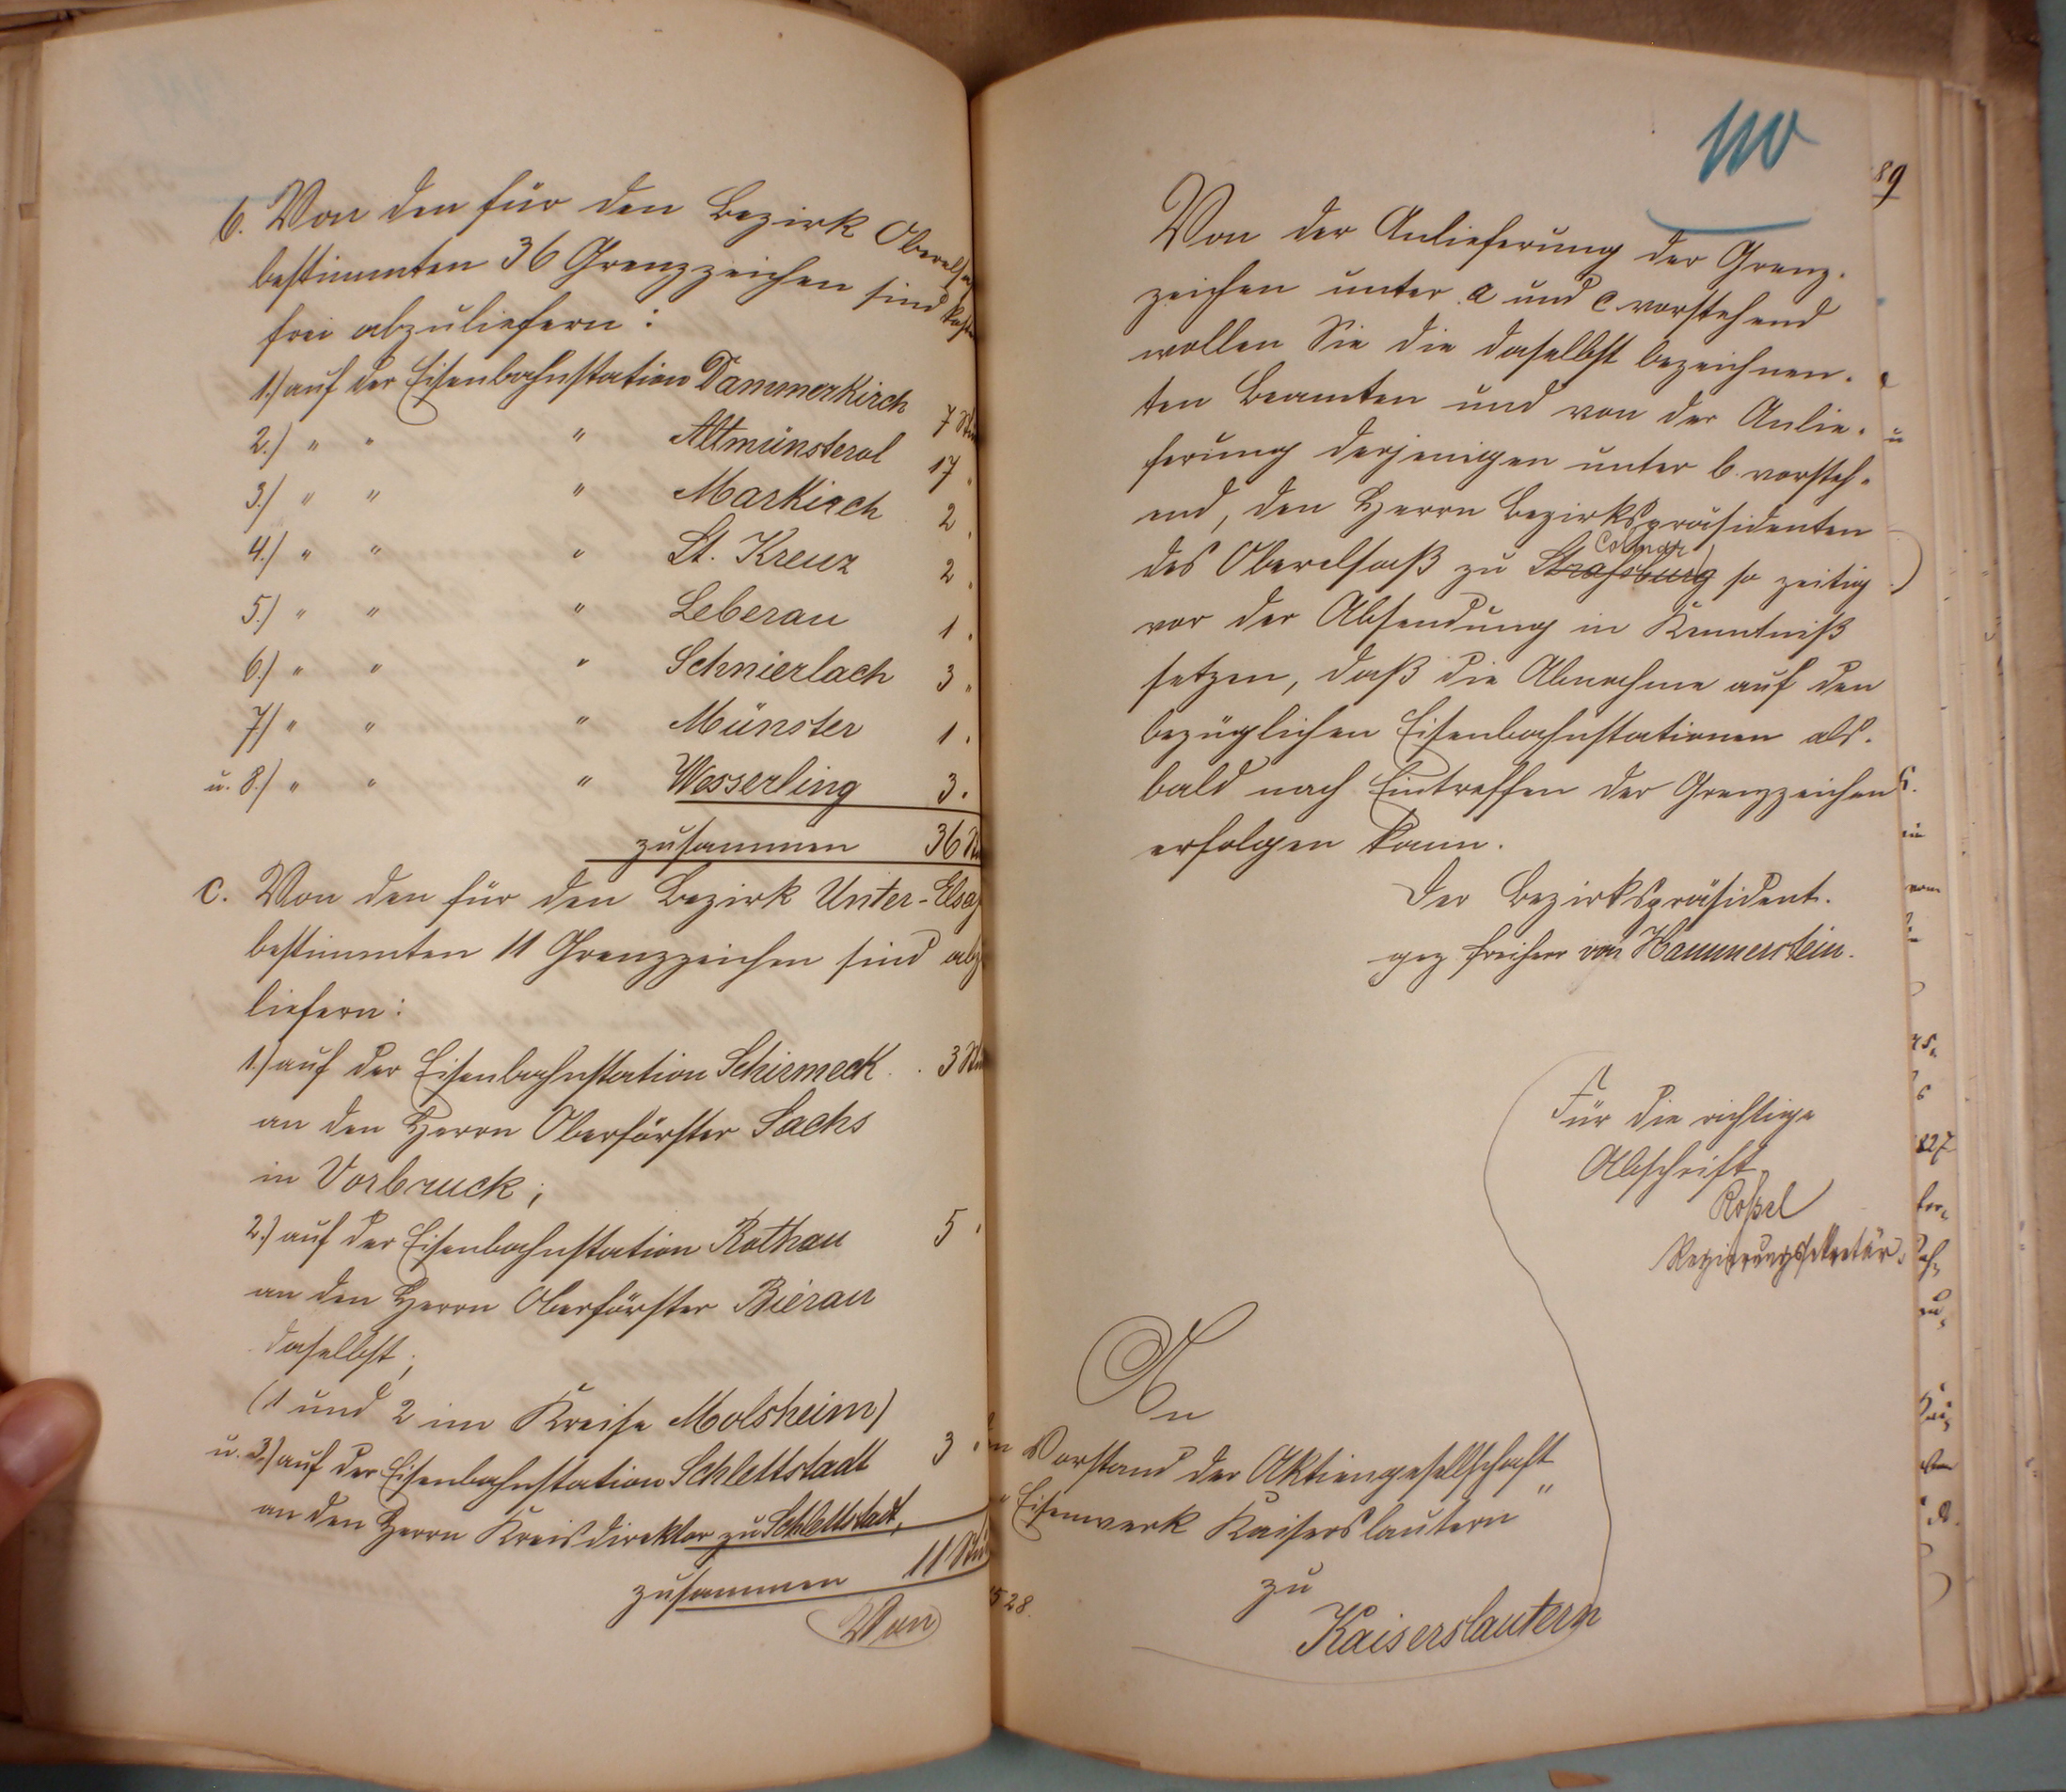 b. Von den für den Bezirk Oberelsaß
bestimmten 36 Grenzzeichen sind kosten
frei abzuliefern:
1.) auf der Eisenbahnstation Dammerkirch 7 Stü
2.) " " " Altmünsterol 17 "
3.) " " " Markirch 2 "
4.) " " " St. Kreuz 2 "
5.) " " " Leberau 1 "
6.) " " " Schnierlach 3 "
7.) " " " Münster 1 "
u. 8.) " " " Wesserling 3 "
zusammen 36 Stü
c. Von den für den Bezirk Unter-Elsaß
bestimmten 11 Grenzzeichen sind abzu
liefern:
1.) auf der Eisenbahnstation Schirmeck . . 3 Stü
an den Herrn Oberförster Sachs
in Vorbruck;
2.) auf der Eisenbahnstation Rothau 5 "
an den Herrn Oberförster Bierau
daselbst;
(1 und 2 im Kreise Molsheim)
u. 3.) auf der Eisenbahnstation Schlettstadt 3 "
an den Herrn Kreisdirektor zu Schlettstadt,
zusammen 11 Stü
Von
110
89
Von der Anlieferung der Grenz-
zeichen unter a und c vorstehend
wollen Sie die daselbst bezeichne-
ten Beamten und von der Anlie-
ferung derjenigen unter b. vorsteh-
end, den Herrn Bezirkspräsidenten
Colmar
des Oberelsaß zu Strassburg so zeitig
vor der Absendung in Kenntniß
setzen, daß die Abnahme auf den
bezüglichen Eisenbahnstationen als-
bald nach Eintreffen der Grenzzeichen
erfolgen kann.
Der Bezirkspräsident.
gez Freiherr von Hammerstein.
Für die richtige
Abschrift
Roßel
Regierungssekretär.
An
den Vorstand der Aktiengesellschaft
"Eisenwerk Kaiserslautern"
zu
Kaiserslautern
528.